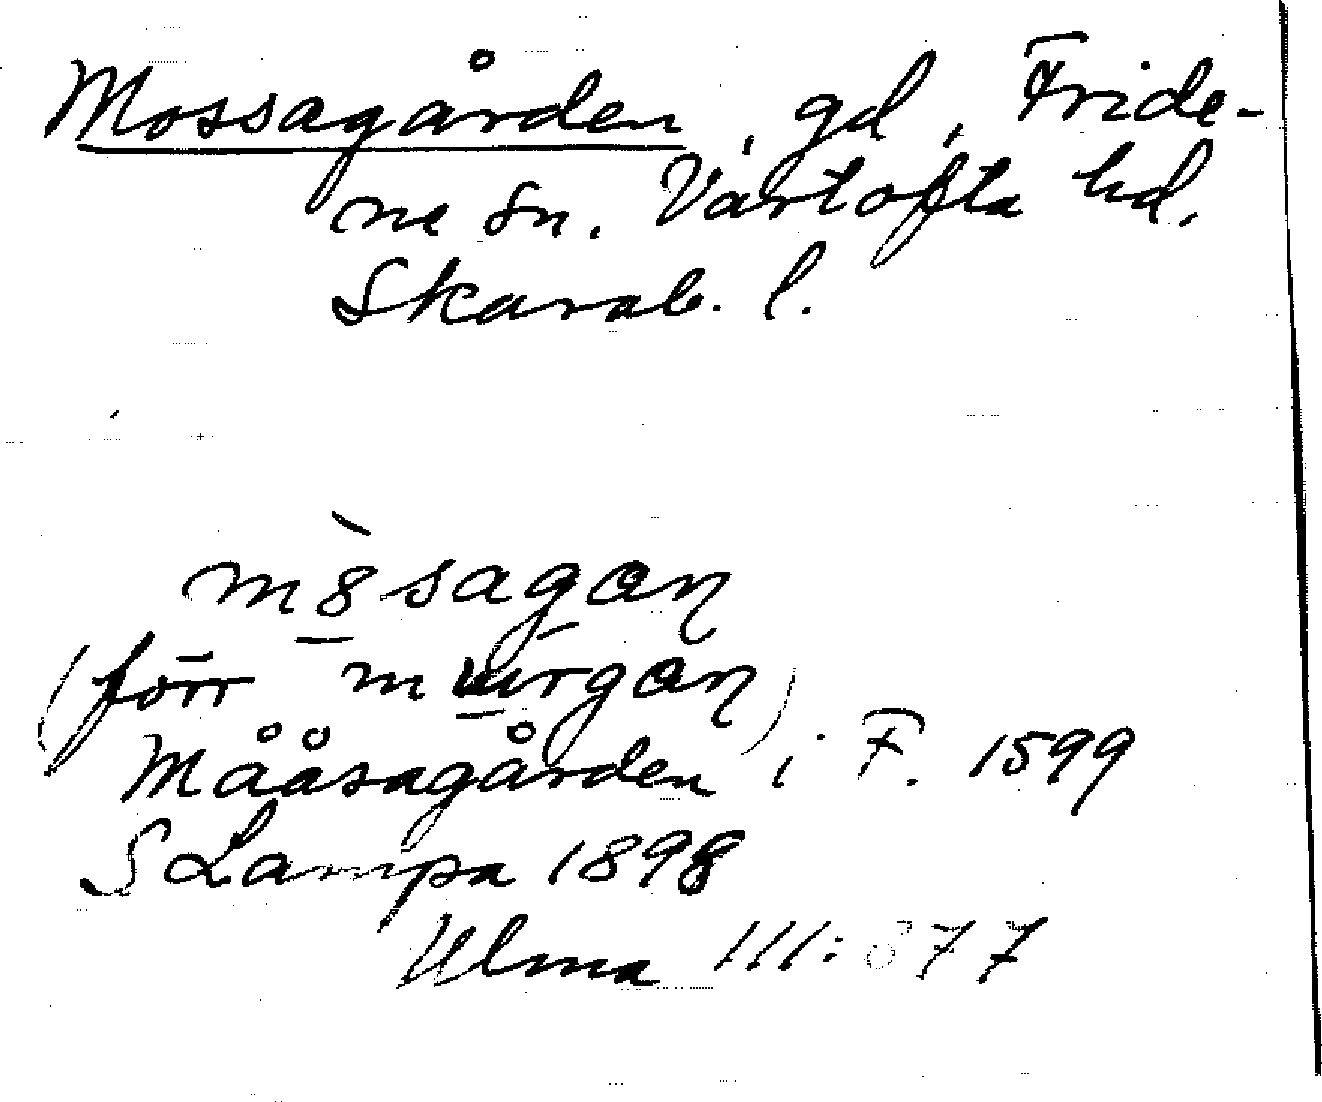 Mossagården, gd, Fride-
ne sn. Vartofta hd,
Skarab. l.
m8̀sagan
(förr murgan)
Mååsagården i F. 1599
S Lampa 1898
Ulma III: 377